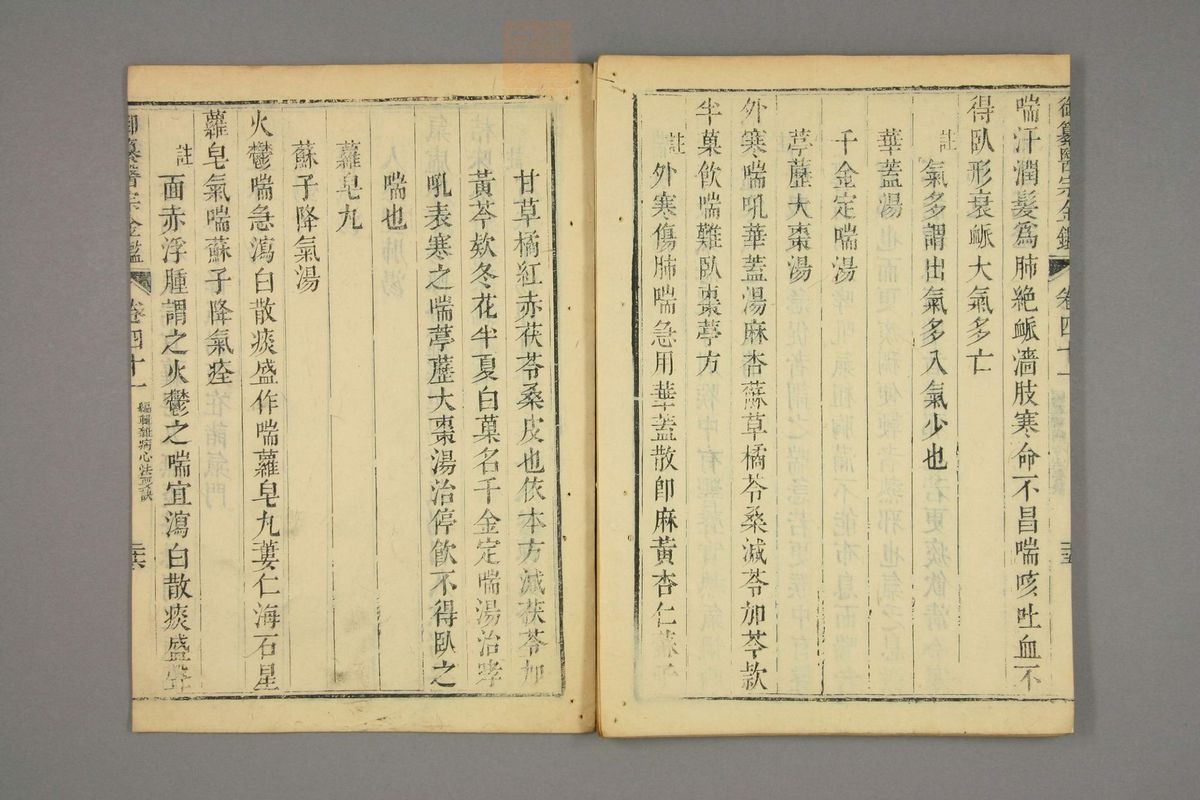 御纂醫宗金鑑 卷四十一
喘汗潤髮爲肺絶脈濇肢寒命不昌喘咳吐血不
得臥形衰脈大氣多亡
註 氣多謂出氣多入氣少也
華蓋湯
千金定喘湯
葶藶大棗湯
外寒喘吼華蓋湯麻杏蘇草橘苓桑減苓加芩款
半菓飲喘難臥棗葶方
註 外寒傷肺喘急用華蓋散卽麻黃杏仁蘇子
甘草橘紅赤茯苓桑皮也依本方減茯苓加
黃芩欵冬花半夏白菓名千金定喘湯治哮
吼表寒之喘葶藶大棗湯治停飲不得臥之
喘也
蘿皂丸
蘇子降氣湯
火鬱喘急瀉白散痰盛作喘蘿皂丸蔞仁海石星
蘿皂氣喘蘇子降氣痊
註 面赤浮腫謂之火鬱之喘宜瀉白散痰盛聲
御纂醫宗金鑑 卷四十一 編輯雜病心法要訣 三六